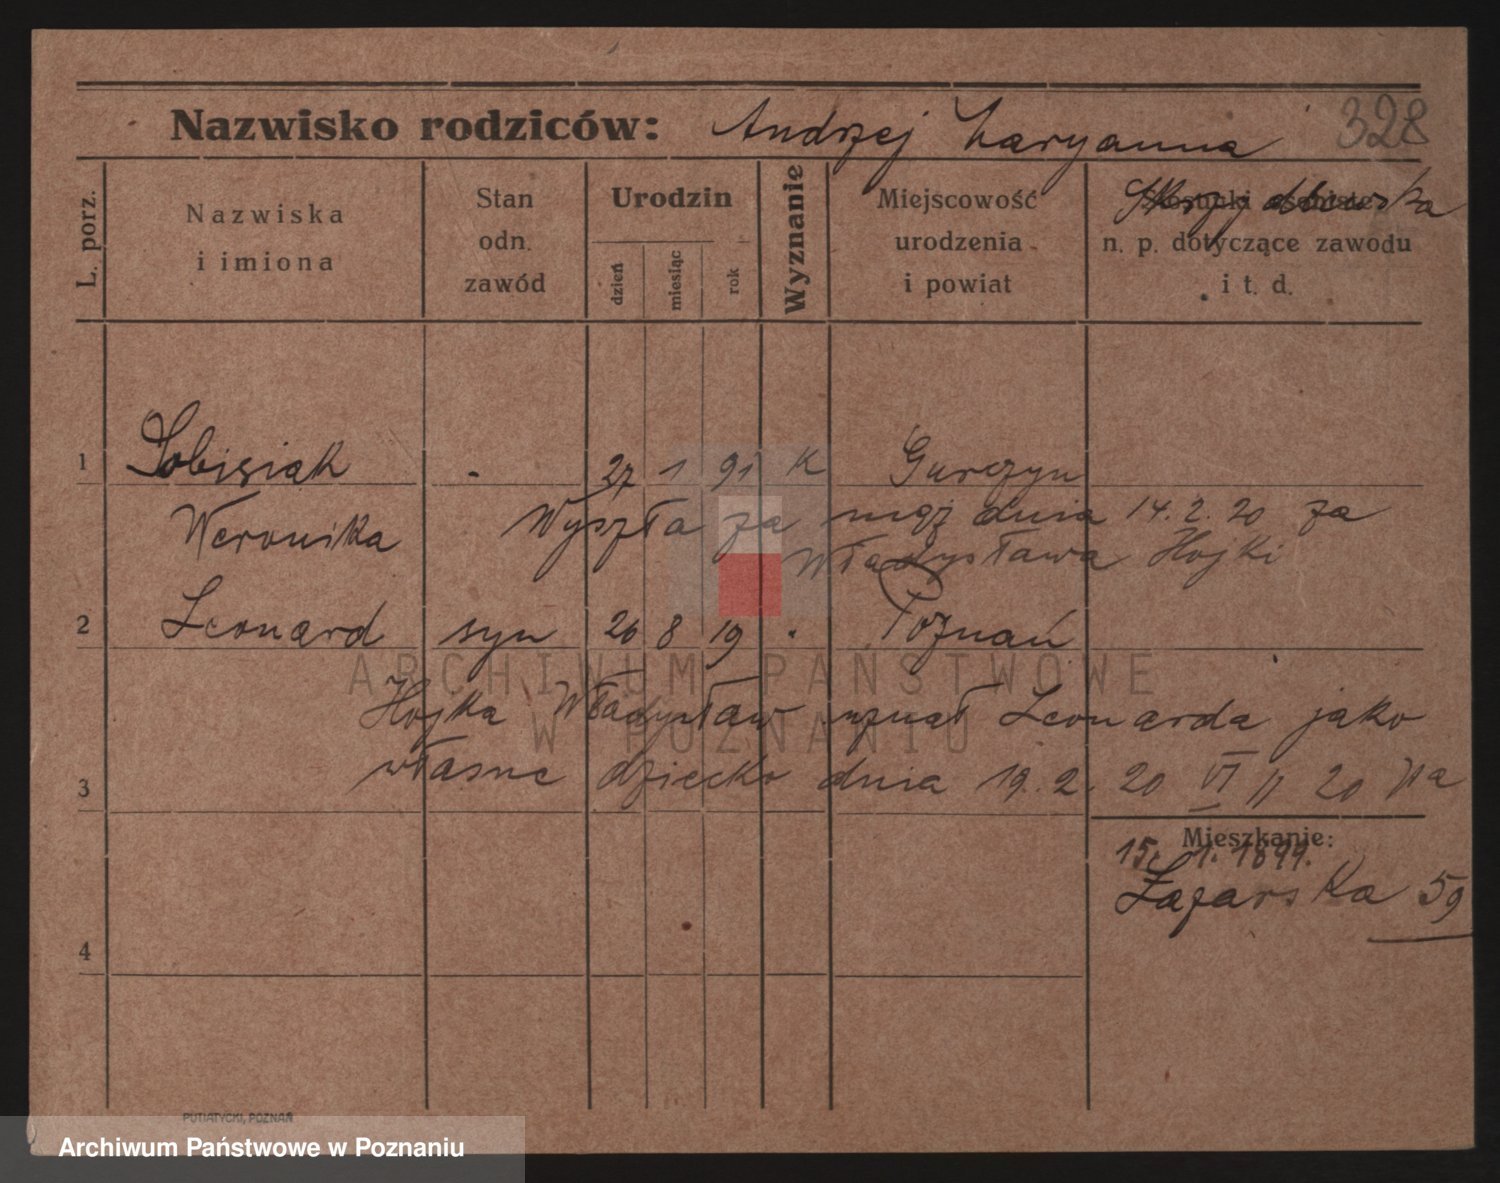 328
Nazwisko rodziców: Andrzej Maryanna
Skrzydlewska
L. porz.
Nazwiska
i imiona
Stan
odn.
zawód
Urodzin
dzień
miesiąc
rok
Wyznanie
Miejscowość
urodzenia
i powiat
Stosunki osobiste
n. p. dotyczące zawodu
i t. d.
1 Sobisiak - 27 1 91 K Gurczyn
Weronika Wyszła za mąż dnia 14. 2. 20 za
Władysława Hojki
2 Leonard syn 26 8 19 . Poznań
Hojka Władysław uznał Leonarda jako
własne dziecko dnia 19. 2. 20 VI 11 20 Na
3
Mieszkanie:
15. 1. 1899.
Łazarska 59
4
PUTIATYCKI, POZNAŃ
ARCHIWUM PAŃSTWOWE
W POZNANIU
Archiwum Państwowe w Poznaniu